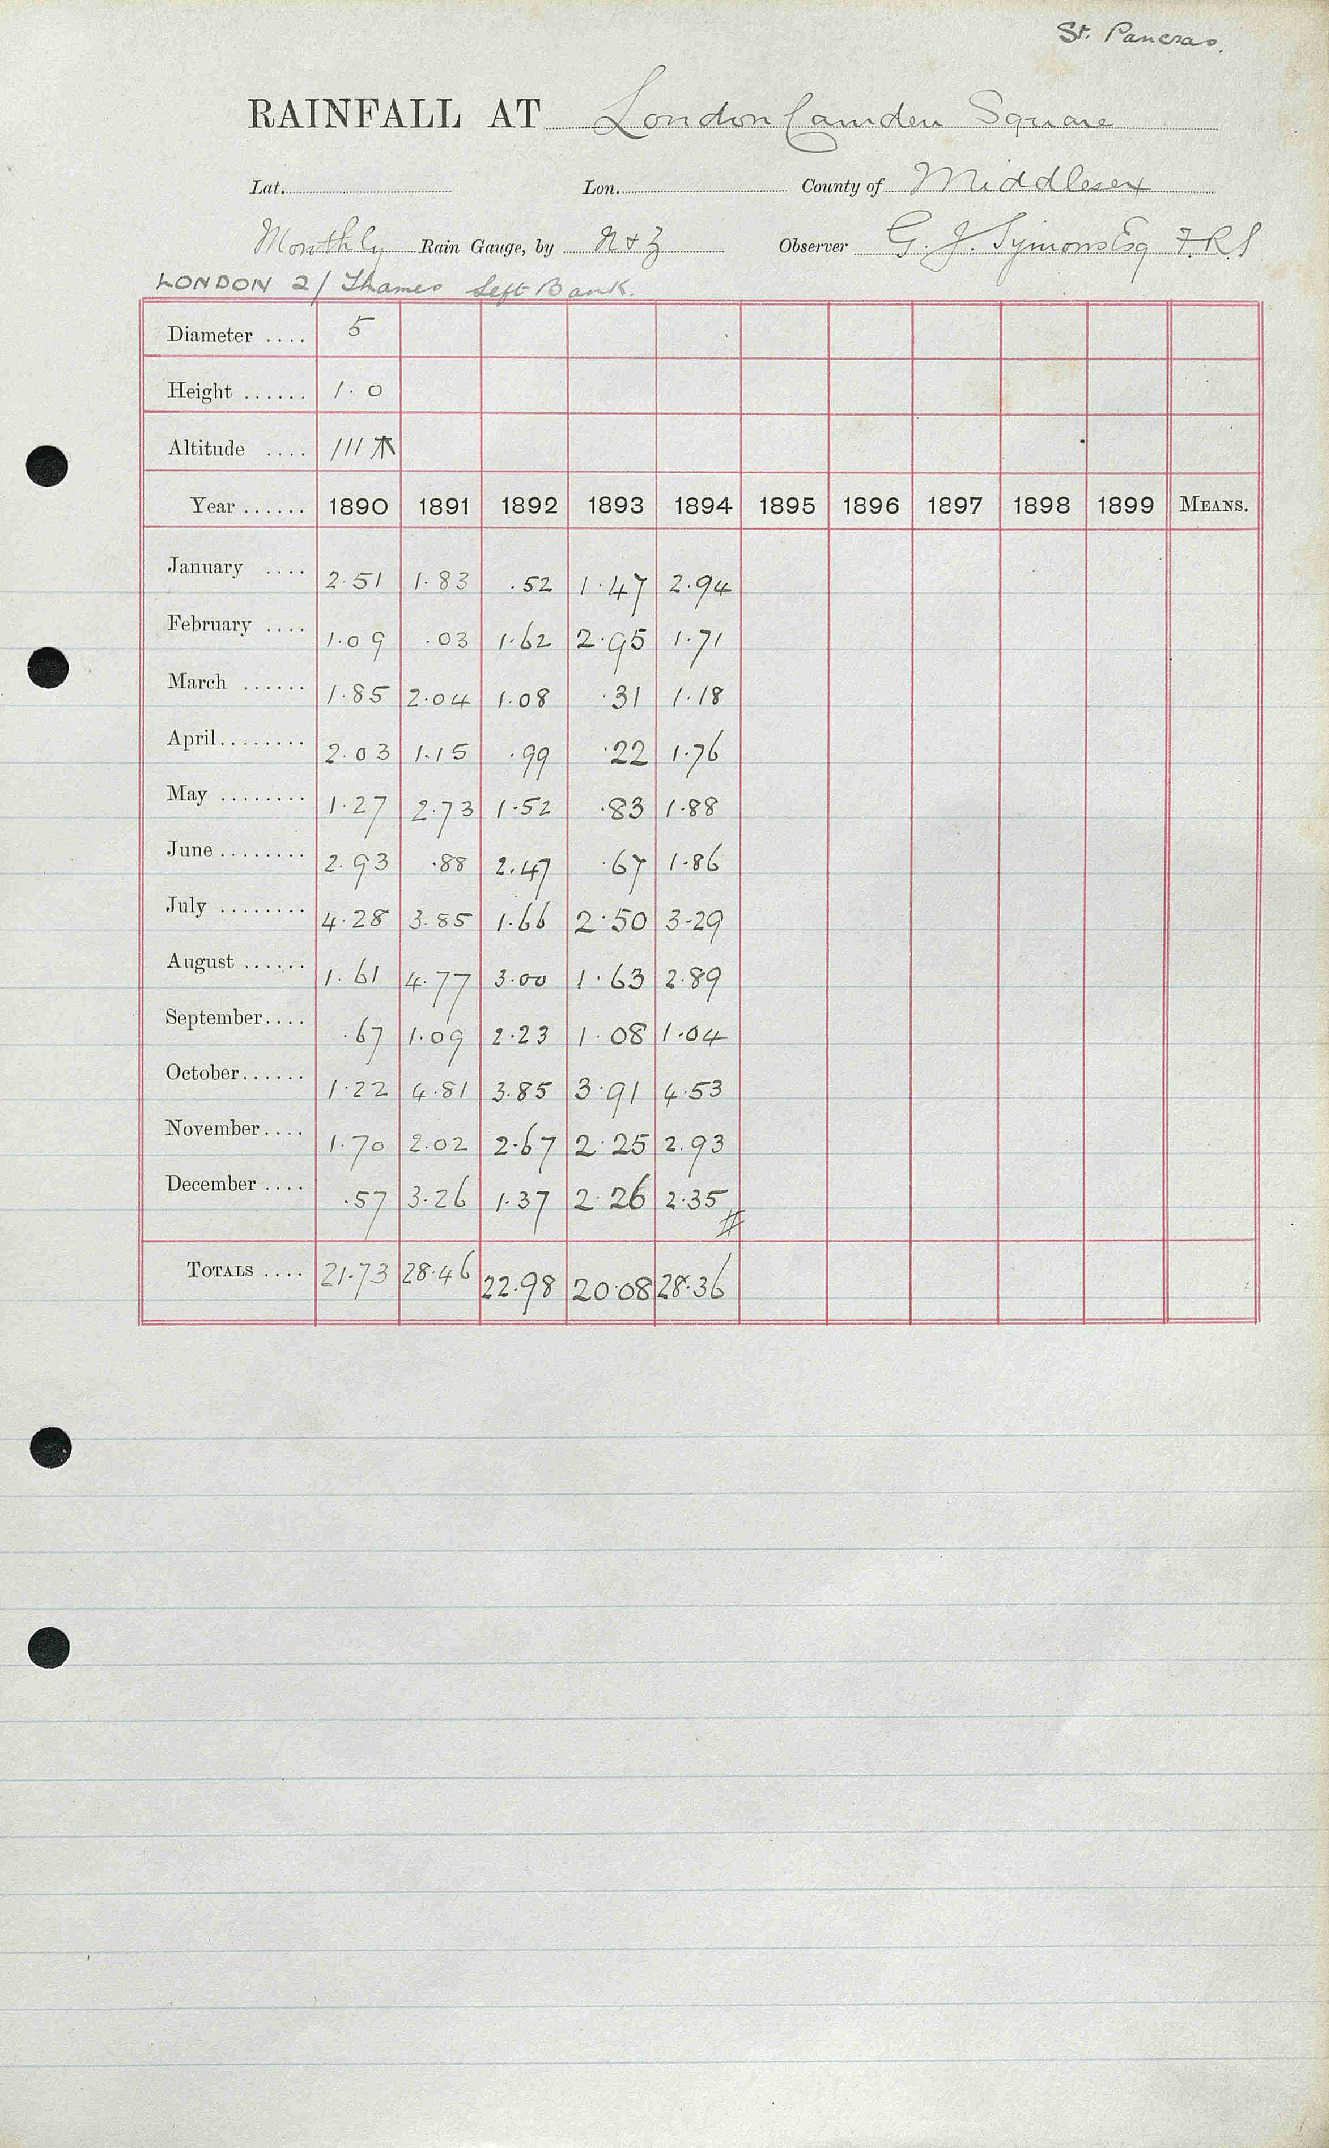 St. Pancras.
RAINFALL AT London Camden Square
Lat. Lon. County of Middlesex
Monthly Rain Gauge, by N & Z Observer G. J. Symons Esq F.R.S
LONDON 2 / Thames Left Bank.
Diameter .... 5
Height ...... 1.0
Altitude .... 111
Year ...... 1890 1891 1892 1893 1894 1895 1896 1897 1898 1899 MEANS.
January .... 2.51 1.83 .52 1.47 2.94
February .... 1.09 .03 1.62 2.95 1.71
March ...... 1.85 2.04 1.08 .31 1.18
April ........ 2.03 1.15 .99 .22 1.76
May ........ 1.27 2.73 1.52 .83 1.88
June ........ 2.93 .88 2.47 .67 1.86
July ........ 4.28 3.85 1.66 2.50 3.29
August ...... 1.61 4.77 3.00 1.63 2.89
September.... .67 1.09 2.23 1.08 1.04
October...... 1.22 4.81 3.85 3.91 4.53
November.... 1.70 2.02 2.67 2.25 2.93
December .... .57 3.26 1.37 2.26 2.35
TOTALS .... 21.73 28.46 22.98 20.08 28.36